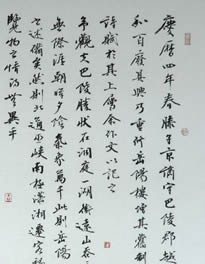 慶曆四年春滕子京謫守巴陵郡越
和百廢具興乃重修岳陽樓增其舊制
詩賦於其上屬余作文以記之
予觀夫巴陵勝狀在洞庭一湖銜遠山吞
無際涯朝暉夕陰氣象萬千此則岳陽
之述備矣然則北通巫峽南極瀟湘遷客騷
覽物之情得無異乎